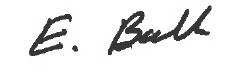 E. Balk